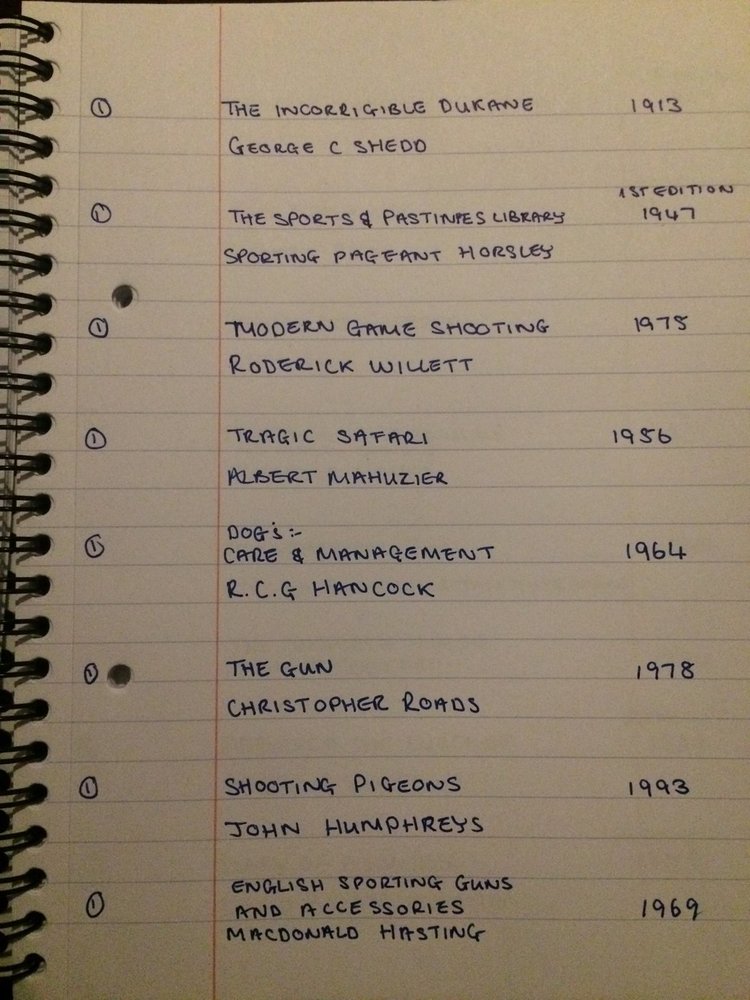 ① THE INCORRIGIBLE DUKANE 1913
GEORGE C SHEDD
1ST EDITION
① THE SPORTS & PASTIMES LIBRARY 1947
SPORTING PAGEANT HORSLEY
① MODERN GAME SHOOTING 1975
RODERICK WILLETT
① TRAGIC SAFARI 1956
ALBERT MAHUZIER
DOG's :-
① CARE & MANAGEMENT 1964
R.C.G HANCOCK
① THE GUN 1978
CHRISTOPHER ROADS
① SHOOTING PIGEONS 1993
JOHN HUMPHREYS
ENGLISH SPORTING GUNS
① AND ACCESSORIES 1969
MACDONALD HASTING